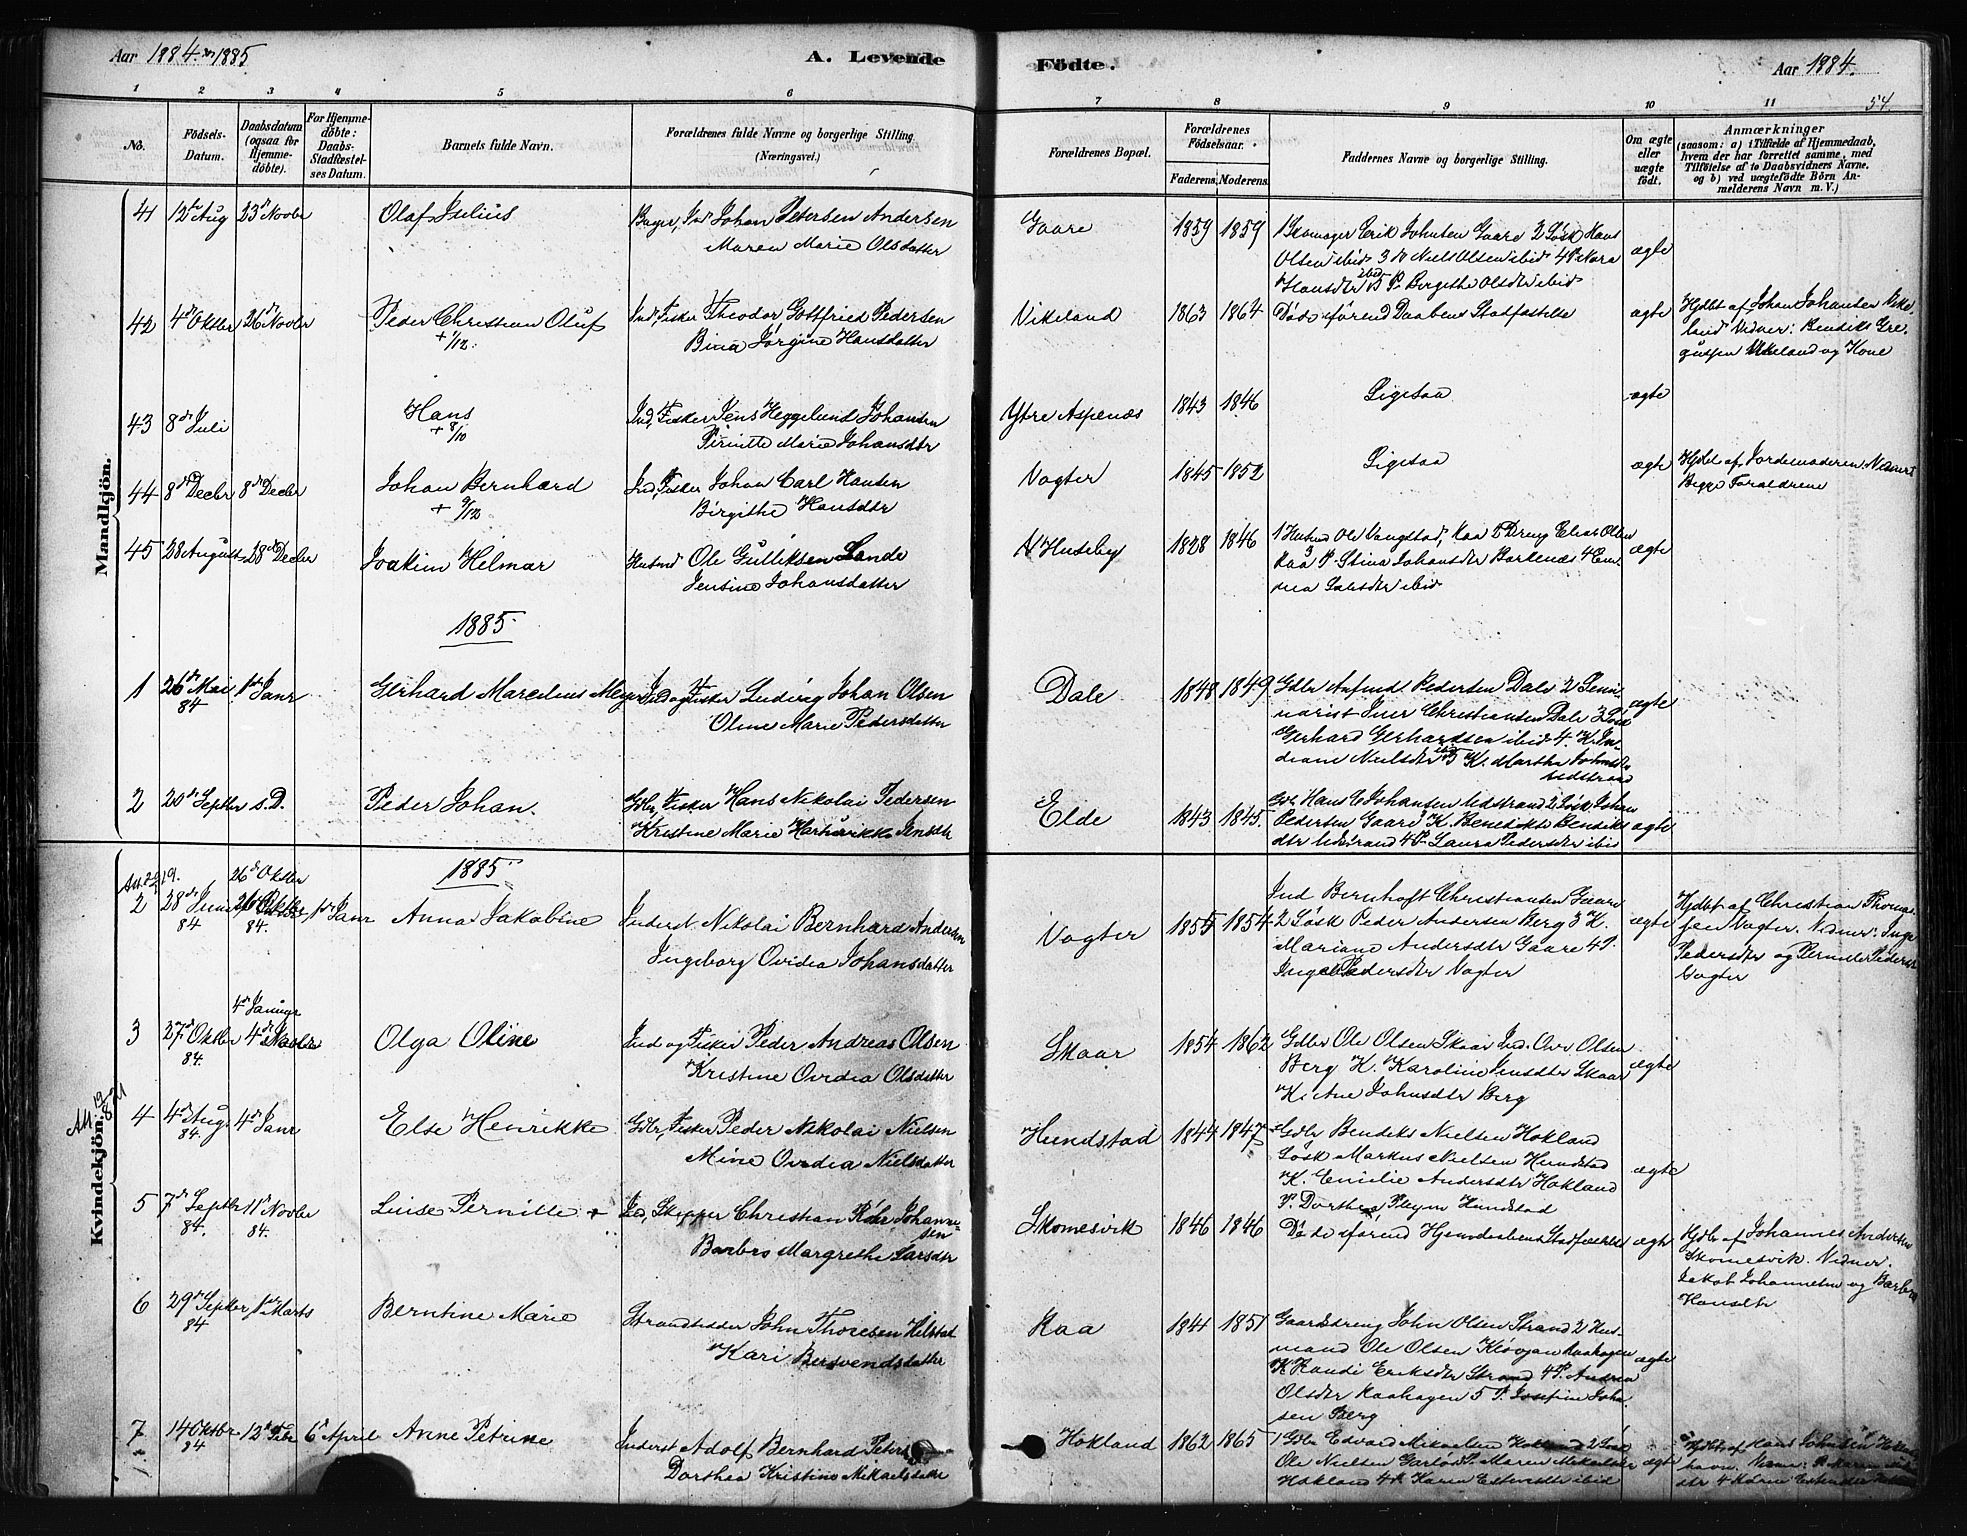 Aar 1884 1885
A. Levende
Födte.
Aar 1884.
54
1 2 3 4 5 6 7 8 9 10 11
No.
Födsels-Datum.
Daabsdatum (ogsaa for Hjemmedöbte).
For Hjemmedöbte: Daabs-Stadfæstelses Datum.
Barnets fulde Navn.
Forældrenes fulde Navne og borgerlige Stilling. (Næringsvei.)
Forældrenes Bopæl.
Forældrenes Födselsaar.
Faderens. Moderens.
Faddernes Navne og borgerlige Stilling.
Om ægte eller uægte födt.
Anmærkninger
(saasom: a) i Tilfælde af Hjemmedaab, hvem der har forrettet samme, med Tilföielse af to Daabsvidners Navne. og b) ved uægtefödte Börn Anmelderens Navn m. V.)
Mandkjön.
41 12te Aug 23d Novbr Olaf Julius
Johan Petersen Andersen
Maren Marie Olsdatter
Gaare 1859 1859
1 Skomager Erik Johnsen Gaare 2 Løsk Hans
Olsen ibid 3 Niels Olsen ibid 4 P. Nora
Hansdtr ibid 5 P. Birgithe Olsdtr ibid
ægte
42 4de Oktbr 26d Novbr Peder Christian Oluf
+ 1/12
Ind, Fisker Theodor Gottfried Pedersen
Bina Jørgine Hansdatter
Vikeland 1863 1864 Døde førend Daabens Stadfæstelse ægte
Hjdbt af Johan Johansen Vikeland Vidner: Bendiks Gregussen Vikeland og Kone
43 8de Juli Hans
+ 8/10
Ind, Fisker Jens Heggelund Johansen
Pernille Marie Johansdtr
Ytre Aspenæs 1843 1846 Ligesaa ægte
44 8de Decbr 8de Decbr Johan Bernhard
+ 9/12
Ind, Fisker Johan Carl Hansen
Birgithe Hansdtr
Vogter 1845 1852 Ligesaa ægte
Hjdbt af Jordemoderen. Vidner
Begge Forældrene
45 28 August 28d Decbr Joakim Helmar
Husmd Ole Gulliksen Lande
Jensine Johansdatter
N Huseby 1828 1846
1 Husmd Ole Vangstad, Kaa 2 Dreng Elias Olsen
Kaa 3 P. Stina Johansdtr Barkenæs
ibid
ægte
1885
1 26de Mai 84 1ste Janr Gerhard Marcelius Meyer
Ind og Fisker Ludvig Johan Olsen
Oline Marie Pedersdatter
Dale 1848 1849
Gdbr Anfind Pedersen Dale 2 Seminarist Iver Christiansen Dale 3 Løsk
Gerhard Gerhardsen ibid 4. K. Indiane Nielsdtr ibid 5 K. Martha
ægte
2 20de Septbr s.D. Peder Johan
Gdbr, Fisker Hans Nikolai Pedersen
Kristine Marie Jensdtr
Elde 1843 1845
Gdb Hans E Johansen Udstrand 2 Løsk Johan
Pedersen Gaare K. Benedikte Bendiksdtr Udstrand 4 P. Laura Pedersdtr ibid
ægte
Kvindekjön.
1885
2 28de Juni 84 26de Oktbr 84. 1ste Janr Anna Jakobine
Inderst. Nikolai Bernhard Andersen
Ingeborg Ovidia Johansdatter
Vogter 1855 1854
Ind Bernhoft Christiansen Gaare
2 Løsk Peder Andersen Berg 3 K.
Mariane Andersdtr Gaare 4 P.
Pedersdtr Vogter
ægte
Hjdbt af Christian Thomassen Vogter. Vidner: Inge
Pedersdtr og Pernille Pedersdtr
Vogter
3 27de Oktbr 84 4de Januar Olga Oline
Ind og Fisker Peder Andreas Olsen
Kristine Ovidia Olsdatter
Skaar 1854 1862
Gdbr Ole Olsen Skaar Ind. Ove Olsen
Berg K. Karoline Jensdtr Skaar
K. Ane Johnsdtr Berg
ægte
4 4de Aug 84. 4de Janr Else Henrikke
Gdbr, Fisker Peder Nikolai Nielsen
Mine Ovidia Nielsdatter
Hundstad 1844 1847
Gdbr Bendeks Nielsen Hokland
Løsk Markus Nielsen Hundstad
K. Emilie Andersdtr Hokland
P. Dorthea Pleym Hundstad
ægte
5 7de Septbr 84. 11te Novbr 84. Luise Pernille +
Ind, Skipper Christian Johannessen
Barbro Margrethe Larsdtr
Skomesvik 1846 1846 Døde førend Hjemmedaabens Stadfæstelse ægte
Hjdbt af Johannes Andersen
Skomesvik. Vidner.
Jakob Johannesen og Barbro
Hansdtr
6 29de Septbr 84 1ste Marts Berntine Marie
Strandsidder John Thoresen Hilstad
Kari Bersvendsdatter
Kaa 1841 1851
Gaardsdreng John Olsen Strand 2 Husmand Ole Olsen Kaahagen
K. Randi Eriksdtr Strand 4 P. Andrea
Olsdtr Kaahagen 5 P. Josefine Berg
ægte
7 14 Oktbr 84 12te Febr 6te April Anne Petrine
Inderst Adolf Bernhard
Dorthea Kristine Mikaelsdatter
Hokland 1862 1865
1 Gdbr Edvard Mikaelsen Hokland 2 Løsk
Ole Nielsen P. Maren Mikaelsdtr
Hokland 4 P. Karen ibid
ægte
Hjdbt af Hans Johnsen